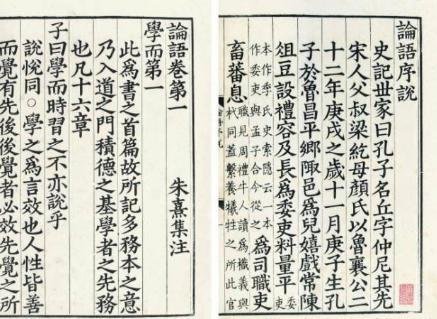 論語序說
史記世家曰孔子名丘字仲尼其先
宋人父叔梁紇母顏氏以魯襄公二
十二年庚戌之歲十一月庚子生孔
子於魯昌平鄉陬邑爲兒嬉戲常陳
俎豆設禮容及長爲委吏料量平委吏
本作季氏史索隱云一本
作委吏與孟子合今從之
爲司職吏
畜蕃息
職見周禮牛人讀爲樴義與
杙同蓋繫養犧牲之所此官
論語卷第一
學而第一 朱熹集注
此爲書之首篇故所記多務本之意
乃入道之門積德之基學者之先務
也凡十六章
子曰學而時習之不亦說乎
說悅同○學之爲言效也人性皆善
而覺有先後後覺者必效先覺之所